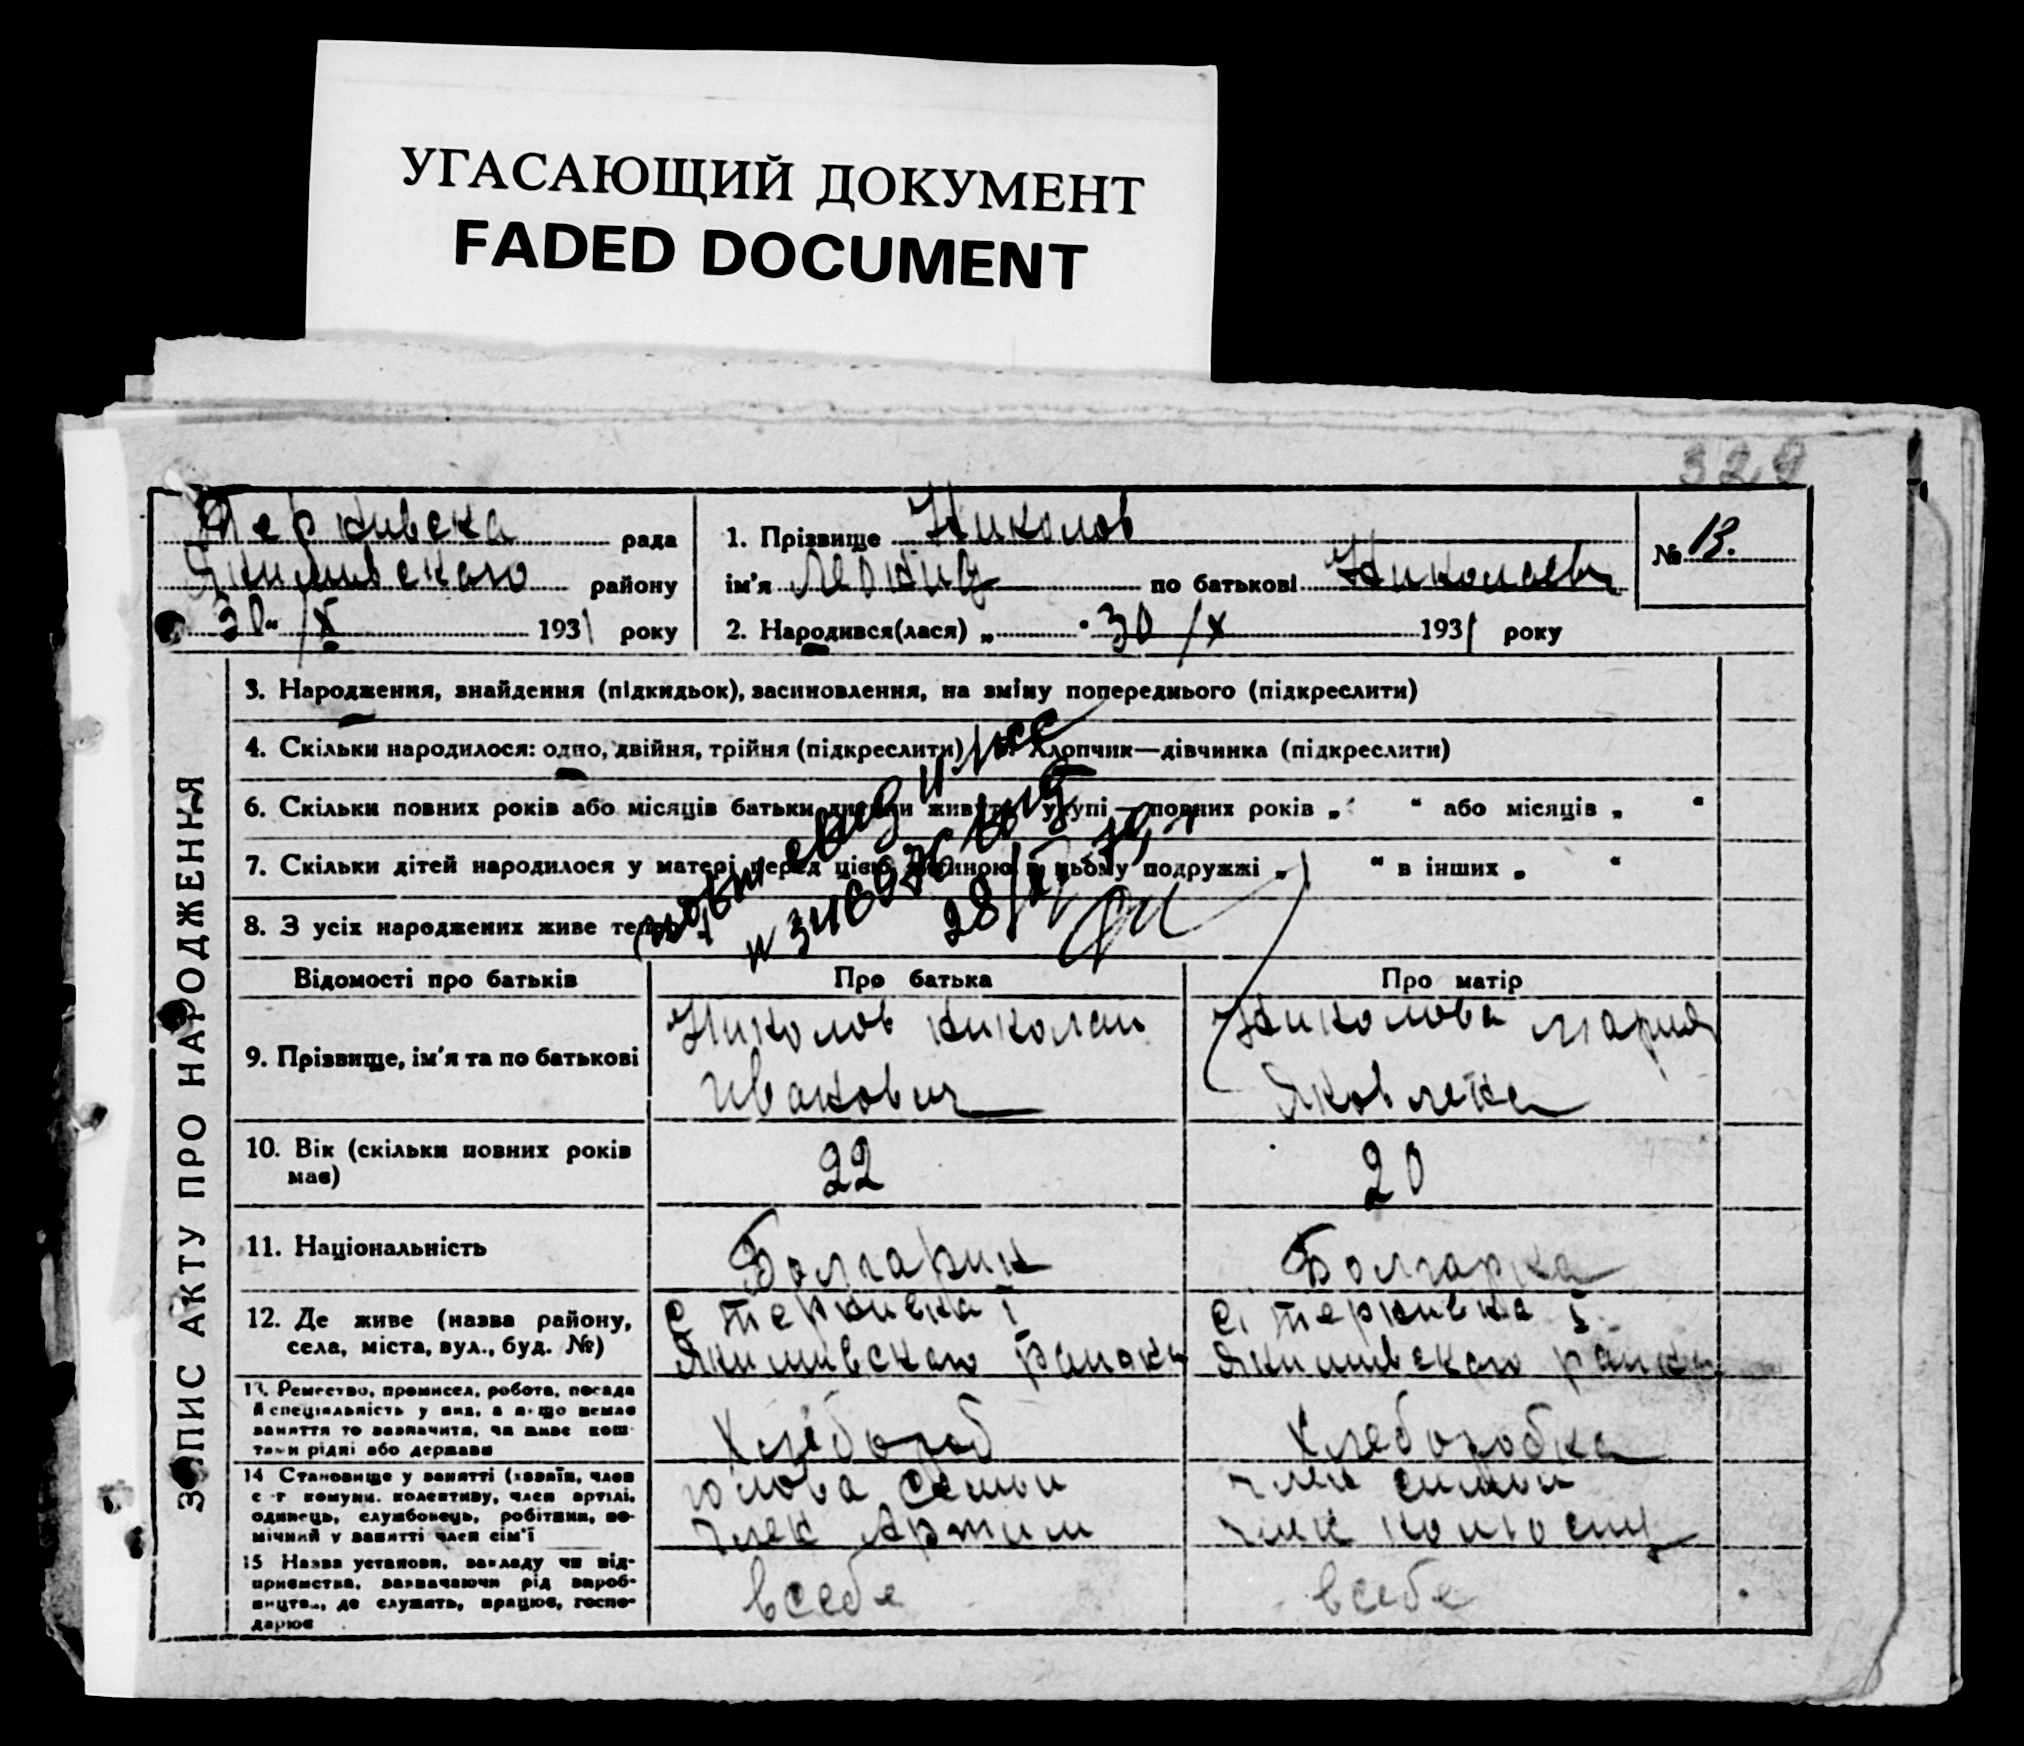 УГАСАЮЩИЙ ДОКУМЕНТ
FADED DOCUMENT
329
Теркивска рада
Якимивского району
30 “ /X 1931 року
1. Прізвище Николов
ім'я по батькові
2. Народився(лася) „ 30 /X 1931 року
№ 13.
ЗАПИС АКТУ ПРО НАРОДЖЕННЯ
3. Народження, знайдення (підкидьок), засиновлення, на зміну попереднього (підкреслити)
4. Скільки народилося: одно, двійня, трійня (підкреслити) Хлопчик—дівчинка (підкреслити)
6. Скільки повних років або місяців батьки дитини живуть укупі — повних років „ “ або місяців „ “
7. Скільки дітей народилося у матері перед цією дитиною в цьому подружжі „ “ в інших „ “
8. З усіх народжених живе тепер
28/
Відомості про батьків Про батька Про матір
9. Прізвище, ім'я та по батькові
Николов Николай
Иванович
Николова Мария
Яковлевна
10. Вік (скільки повних років
має)
22
20
11. Національність
Болгарин
Болгарка
12. Де живе (назва району,
села, міста, вул., буд. №)
с Теркивка І
Якимивского района
с. Теркивка І.
Якимивского района
13. Ремество, промисел, робота, посада
й спеціяльність у них, а якщо немає
заняття то зазначити, чи живе кош-
тами рідні або держави
Хлебороб
Хлеборобка
14 Становище у занятті (хазяїн, член
с-г комуни. колективу, член артілі,
одинець, службовець, робітник, по-
мічний у занятті член сім'ї
голова семьи
член Артили
член семьи
член
15 Назва установи, закладу чи під-
приємства, зазначаючи рід вироб-
ництва, де служить, працює, госпо-
дарює
в себе
в себе